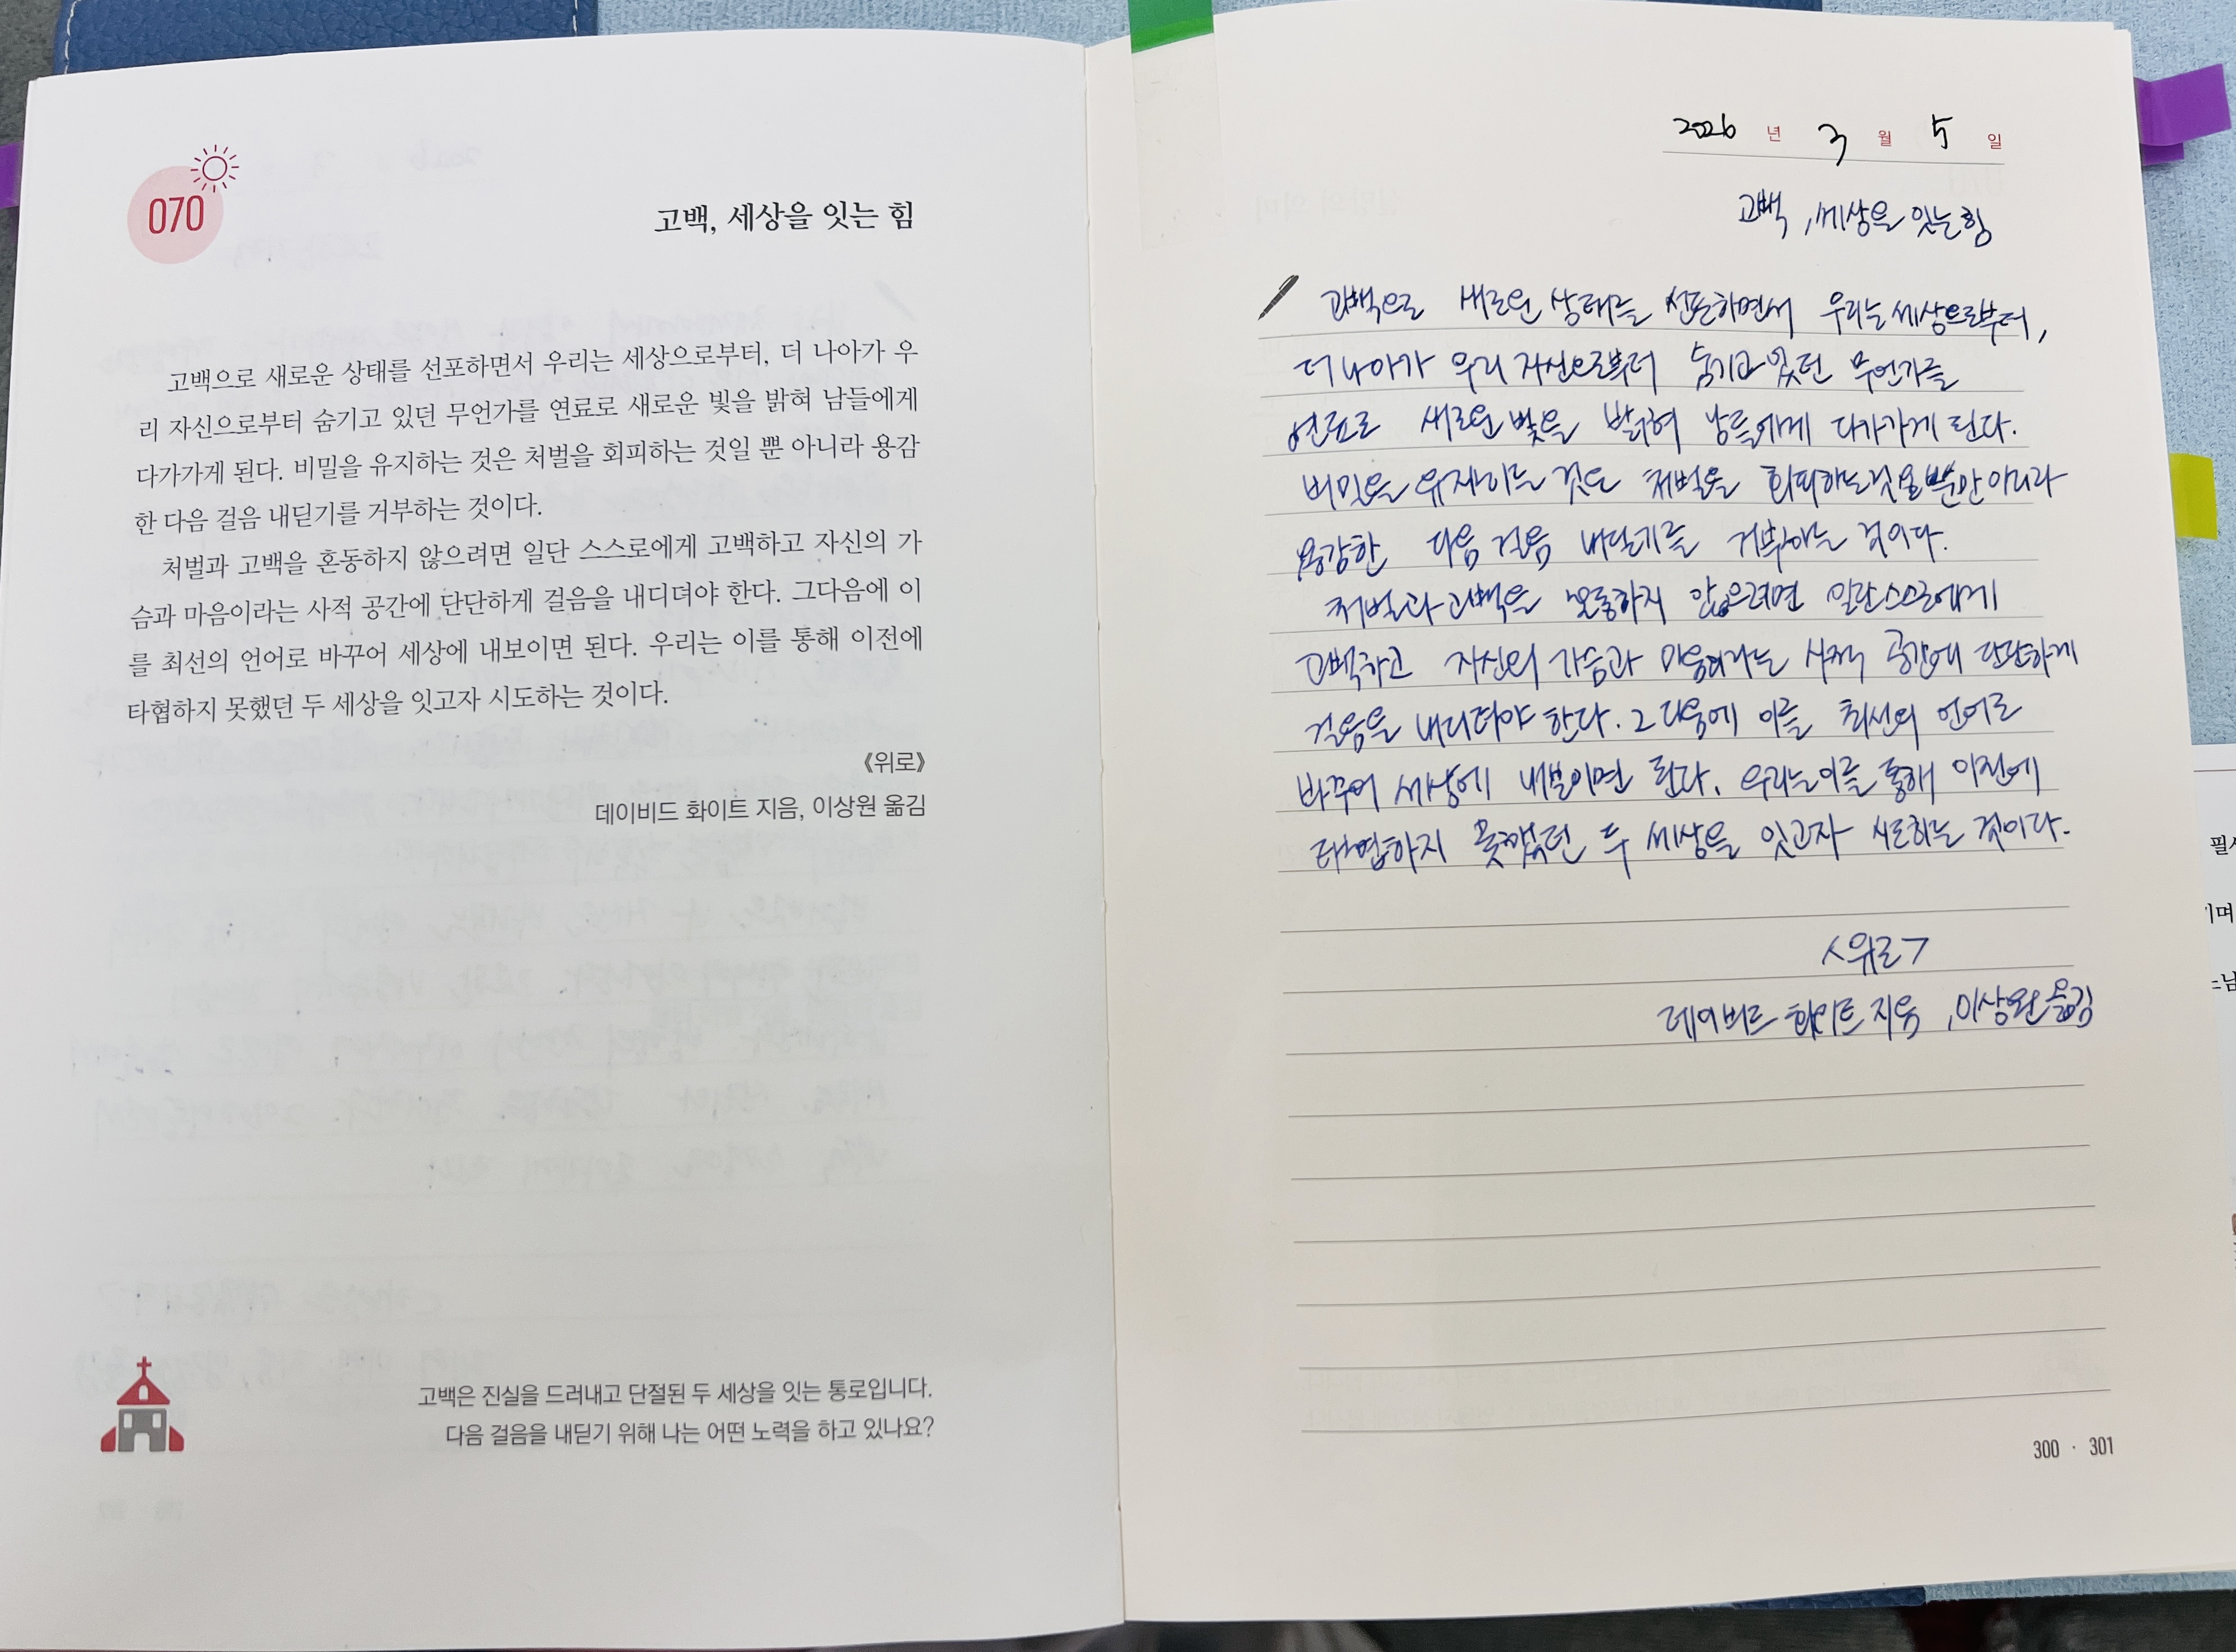 070
고백, 세상을 잇는 힘
고백으로 새로운 상태를 선포하면서 우리는 세상으로부터, 더 나아가 우
리 자신으로부터 숨기고 있던 무언가를 연료로 새로운 빛을 밝혀 남들에게
다가가게 된다. 비밀을 유지하는 것은 처벌을 회피하는 것일 뿐 아니라 용감
한 다음 걸음 내딛기를 거부하는 것이다.
처벌과 고백을 혼동하지 않으려면 일단 스스로에게 고백하고 자신의 가
슴과 마음이라는 사적 공간에 단단하게 걸음을 내디뎌야 한다. 그다음에 이
를 최선의 언어로 바꾸어 세상에 내보이면 된다. 우리는 이를 통해 이전에
타협하지 못했던 두 세상을 잇고자 시도하는 것이다.
《위로》
데이비드 화이트 지음, 이상원 옮김
고백은 진실을 드러내고 단절된 두 세상을 잇는 통로입니다.
다음 걸음을 내딛기 위해 나는 어떤 노력을 하고 있나요?
2026 년 3 월 5 일
고백, 세상을 잇는 힘
고백으로 새로운 상태를 선포하면서 우리는 세상으로부터,
더 나아가 우리 자신으로부터 숨기고 있던 무언가를
연료로 새로운 빛을 밝혀 남들에게 다가가게 된다.
비밀을 유지하는 것은 처벌을 회피하는 것일 뿐만 아니라
용감한 다음 걸음 내딛기를 거부하는 것이다.
처벌과 고백을 혼동하지 않으려면 일단 스스로에게
고백하고 자신의 가슴과 마음이라는 사적 공간에 단단하게
걸음을 내디뎌야 한다. 그다음에 이를 최선의 언어로
바꾸어 세상에 내보이면 된다. 우리는 이를 통해 이전에
타협하지 못했던 두 세상을 잇고자 시도하는 것이다.
<위로>
데이비드 화이트 지음, 이상원 옮김
300 · 301